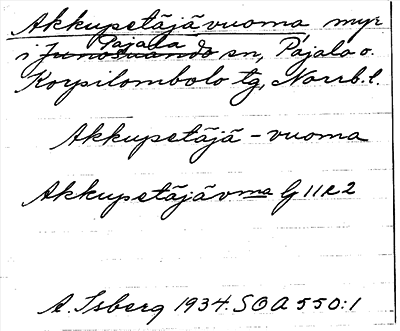 Akkupetäjävuoma myr
Pajala
i Junosuando sn, Pajala o.
Korpilombolo tg, Norrb. l.
Akkupetäjä-vuoma
Akkupetäjävma G 11 R 2
A. Isberg 1934. SOA 550:1